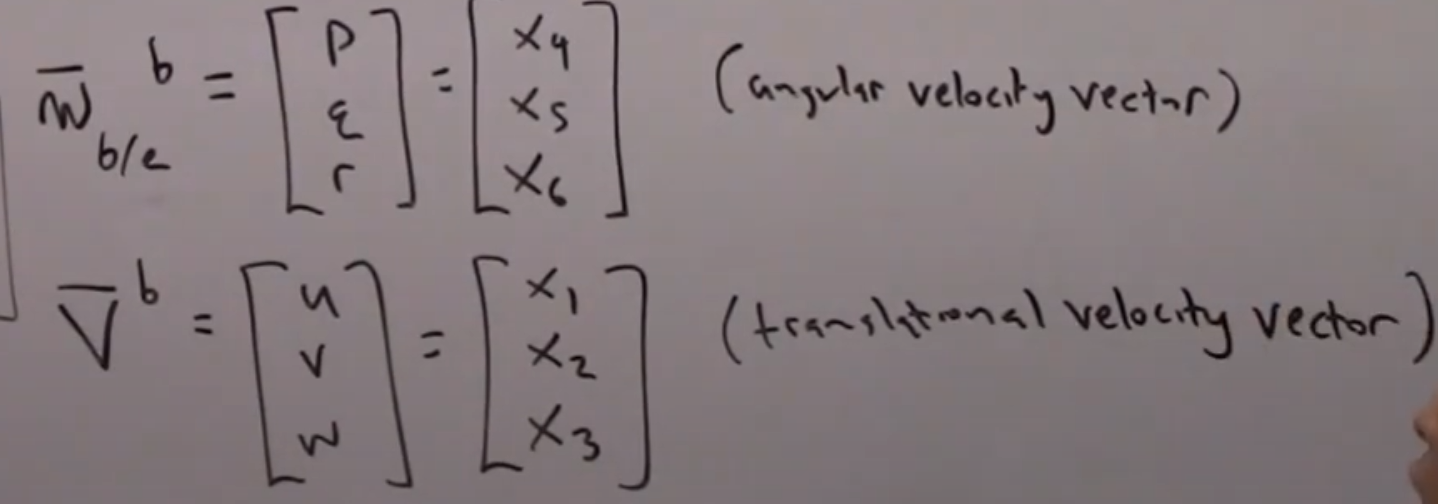 ω̄ᵇ_b/e = [p q r] = [x₄ x₅ x₆] (angular velocity vector)
V̄ᵇ = [u v w] = [x₁ x₂ x₃] (translational velocity vector)